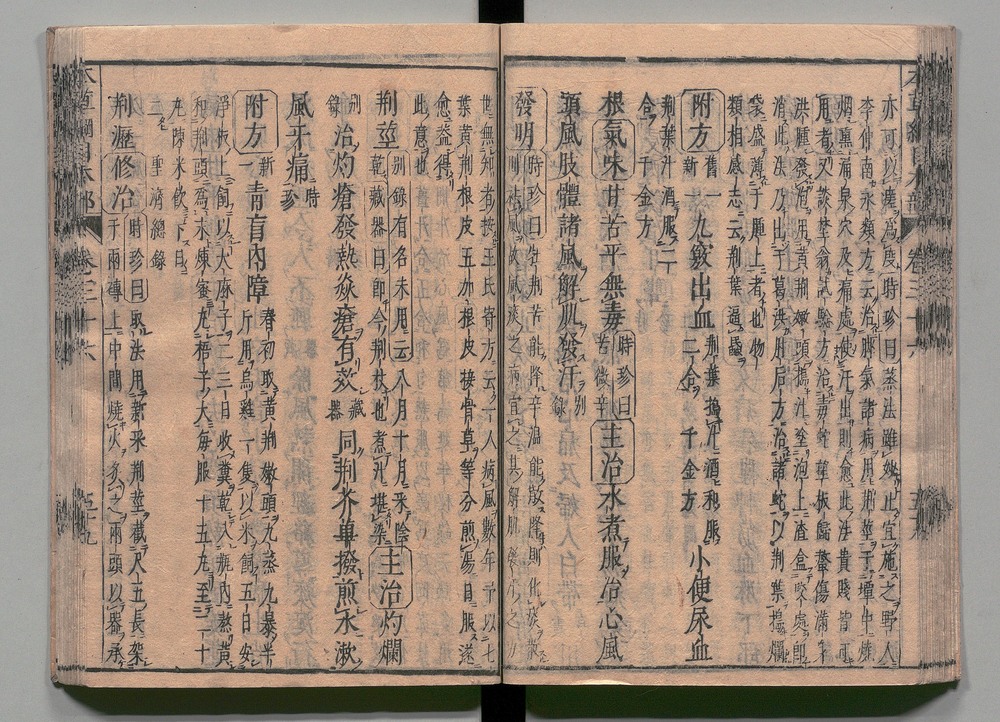 亦可以蓐爲度時珍曰蒸法雖妙止宜施之野人
李仲南永類方云治脚氣諸病用荆莖于壜中燒
烟熏涌泉穴及痛處使汗出則愈此法貴賤皆可
用者又談埜翁試驗方治毒蛇望板歸螫傷滿身
洪腫發泡用黄荆嫩頭搗汁塗泡上渣盦咬處即
消此法乃出于葛洪肘后方治諸蛇以荆葉搗爛
袋盛薄于腫上者也物
類相感志云荆葉逼蚊
附方舊一新一九竅出血荆葉搗汁酒和服二合千金方小便尿血
荆葉汁酒服二
合千金方
根氣味甘苦平無毒時珍曰苦微辛主治水煮服治心風
頭風肢體諸風解肌發汗别錄
發明時珍曰牡荆苦能降辛温能散降則化痰散
則祛風故風痰之病宜之其解肌發汗之
世無知者按王氏奇方云一人病風數年予以七
葉黄荆根皮五加根皮接骨草等分煎湯日服遂
愈盖得
此意也
荆莖别錄有名未用云八月十月采陰乾藏器曰即今荆杖也煮汁堪染主治灼爛
别錄治灼瘡發熱焱瘡有效藏器同荆芥蓽撥煎水漱
風牙痛時珍
附方新一青盲内障春初取黄荆嫩頭九蒸九暴半斤用烏雞一隻以米飼五日安
浄板上飼以大麻子二三日收糞乾入瓶内熬黄
和荆頭爲末煉蜜丸梧子大每服十五丸至二十
丸陳米飲下日
二聖濟總錄
荆瀝修治時珍曰取法用新采荆莖截尺五長架
于兩磚上中間燒火炙之兩頭以器承